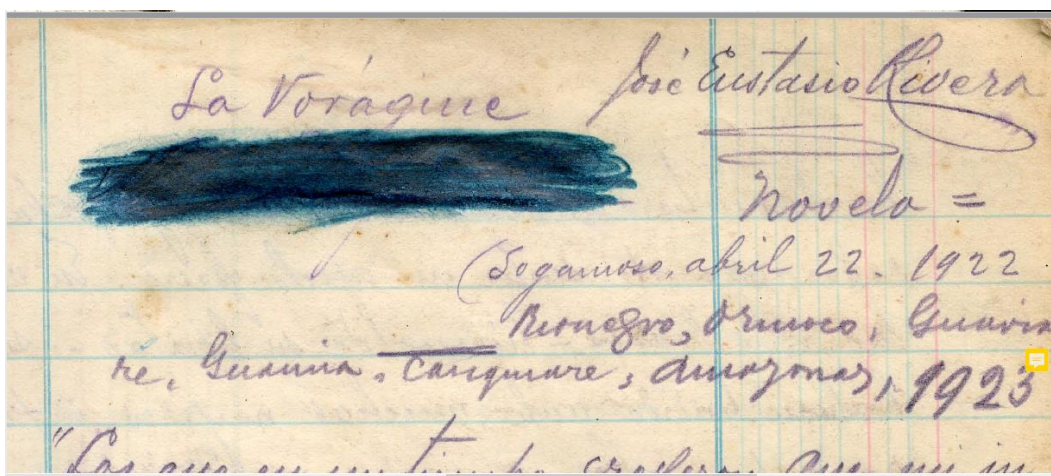 La Vorágine
José Eustasio Rivera
Novela =
(Sogamoso, abril 22. 1922
Rionegro, Orinoco, Guavia
re, Guainia, Casiquiare, Amazonas, 1923
"Los que en un tiempo creyeron que mi in